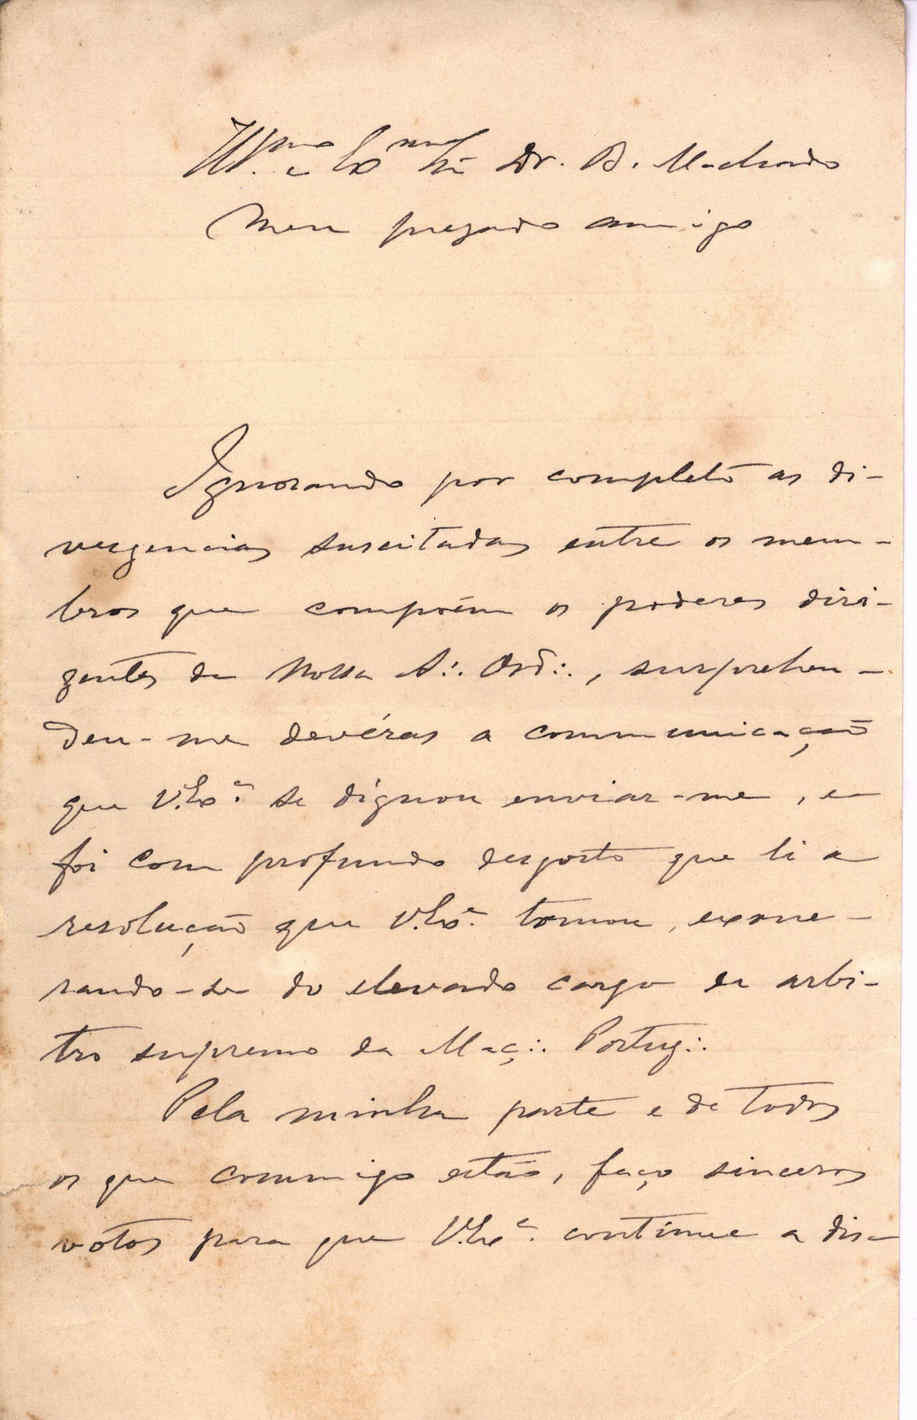 Ill.mo e Ex.mo Sr. Dr. B. Machado
Meu presado amigo
Ignorando por completo as di-
vergencias suscitadas entre os mem-
bros que compoém os poderes diri-
gentes da Nossa A∴ Ord∴, surprehen-
deu-me devéras a communicação
que V. Ex.ª se dignou enviar-me, e
foi com profundo desgosto que li a
resolução que V. Ex.ª tomou, exone-
rando-se do elevado cargo de arbi-
tro supremo da Maç∴ Portug∴
Pela minha parte e de todos
os que commigo estão, faço sinceros
votos para que V. Ex.ª continue a dis-